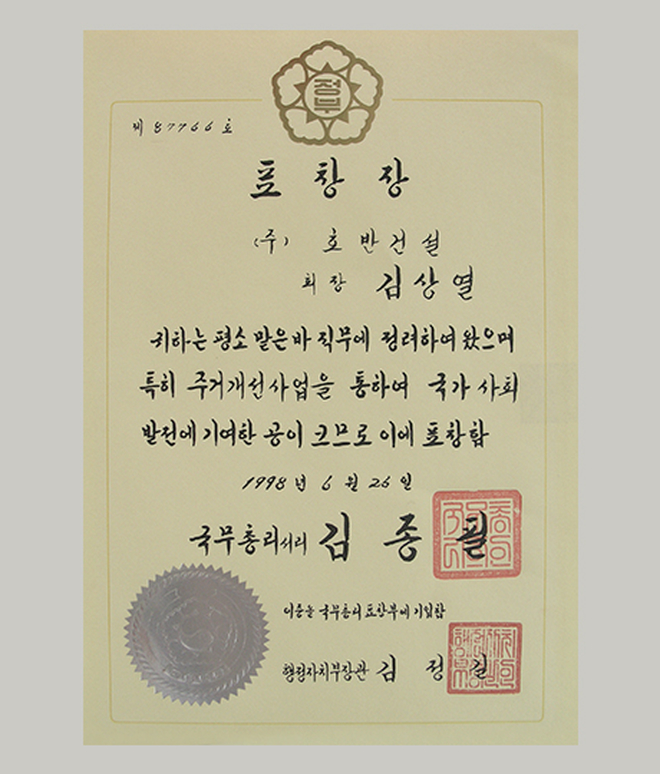 정부
제 87766 호
표창장
(주) 호반건설
회장 김상열
귀하는 평소 맡은바 직무에 정려하여 왔으며
특히 주거개선사업을 통하여 국가 사회
발전에 기여한 공이 크므로 이에 표창함
1998 년 6 월 26 일
국무총리서리 김 종 필
이윤을 국무총리 표창부에 기입함
행정자치부장관 김 정 길